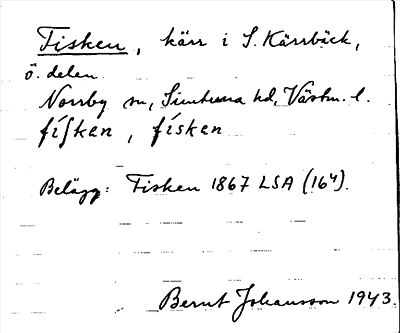 Fisken, kärr i S. Kärrbäck,
ö. delen.
Norrby sn, Simtuna hd, Västm. l.
fiſken, físken
Belägg: Fisken 1867 LSA (16⁴).
Bernt Johansson 1943.